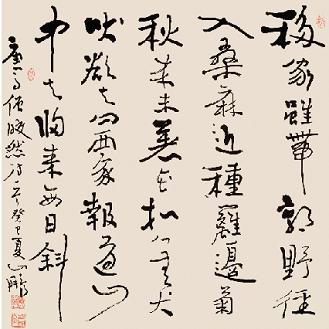 移家雖帶郭野径
入桑麻近種籬邊菊
秋来未着花扣门无犬
吠欲去问西家報道山
中去归来每日斜
唐僧皎然诗癸巳夏